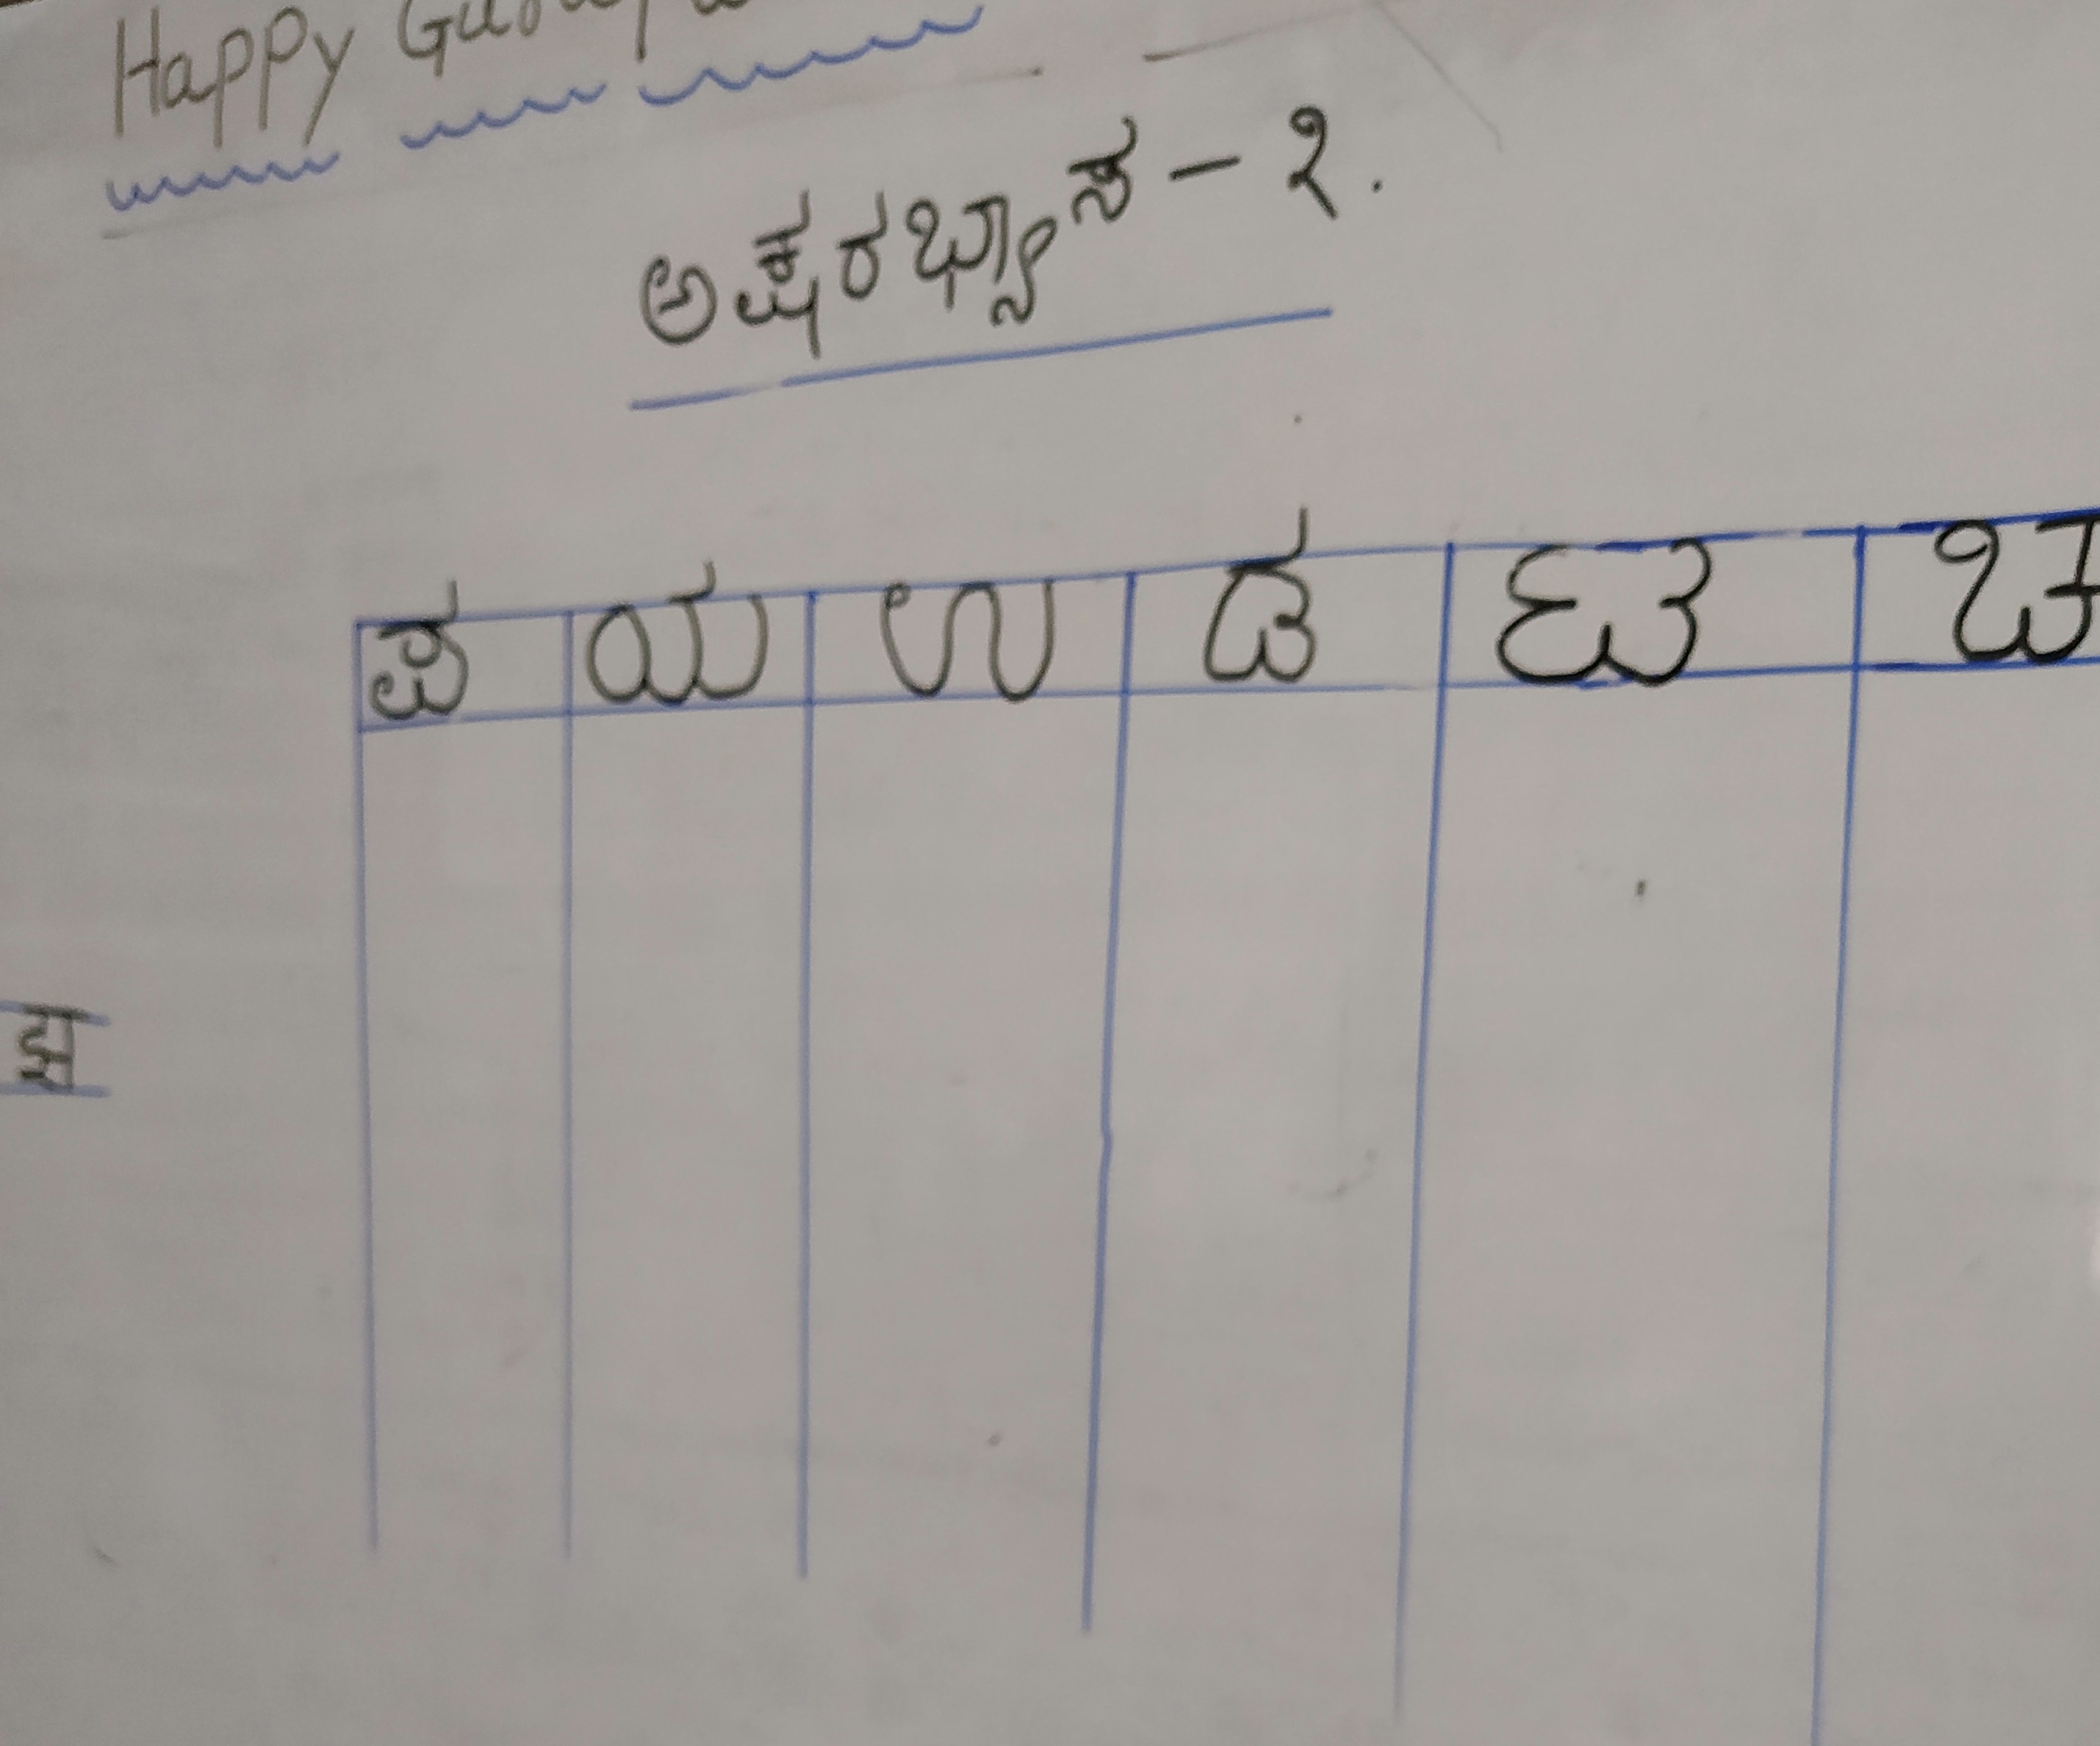 Happy
ಅಕ್ಷರಭ್ಯಾಸ - ೨.
ಪ ಯ ಉ ಡ ಟ ಚ
झ